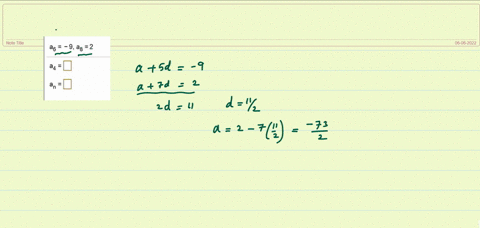 Note Title
06-08-2022
a₆ = −9, a₈ = 2
a₄ =
aₙ =
a + 5d = -9
a + 7d = 2
2d = 11   d = 11/2
a = 2 - 7(11/2) = -73/2